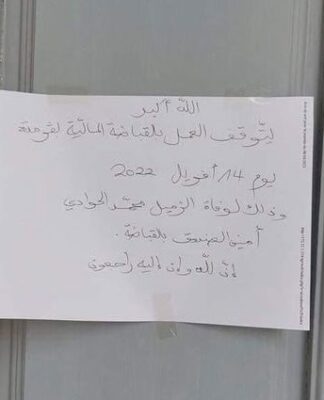 الله أكبر
يتوقف العمل بالقباضة المالية لقرمدة
يوم 14 أفريل 2022
وذلك لوفاة الزميل محمد الحوادي
أمين الصندوق بالقباضة.
إنّ لله وإن إليه راجعون